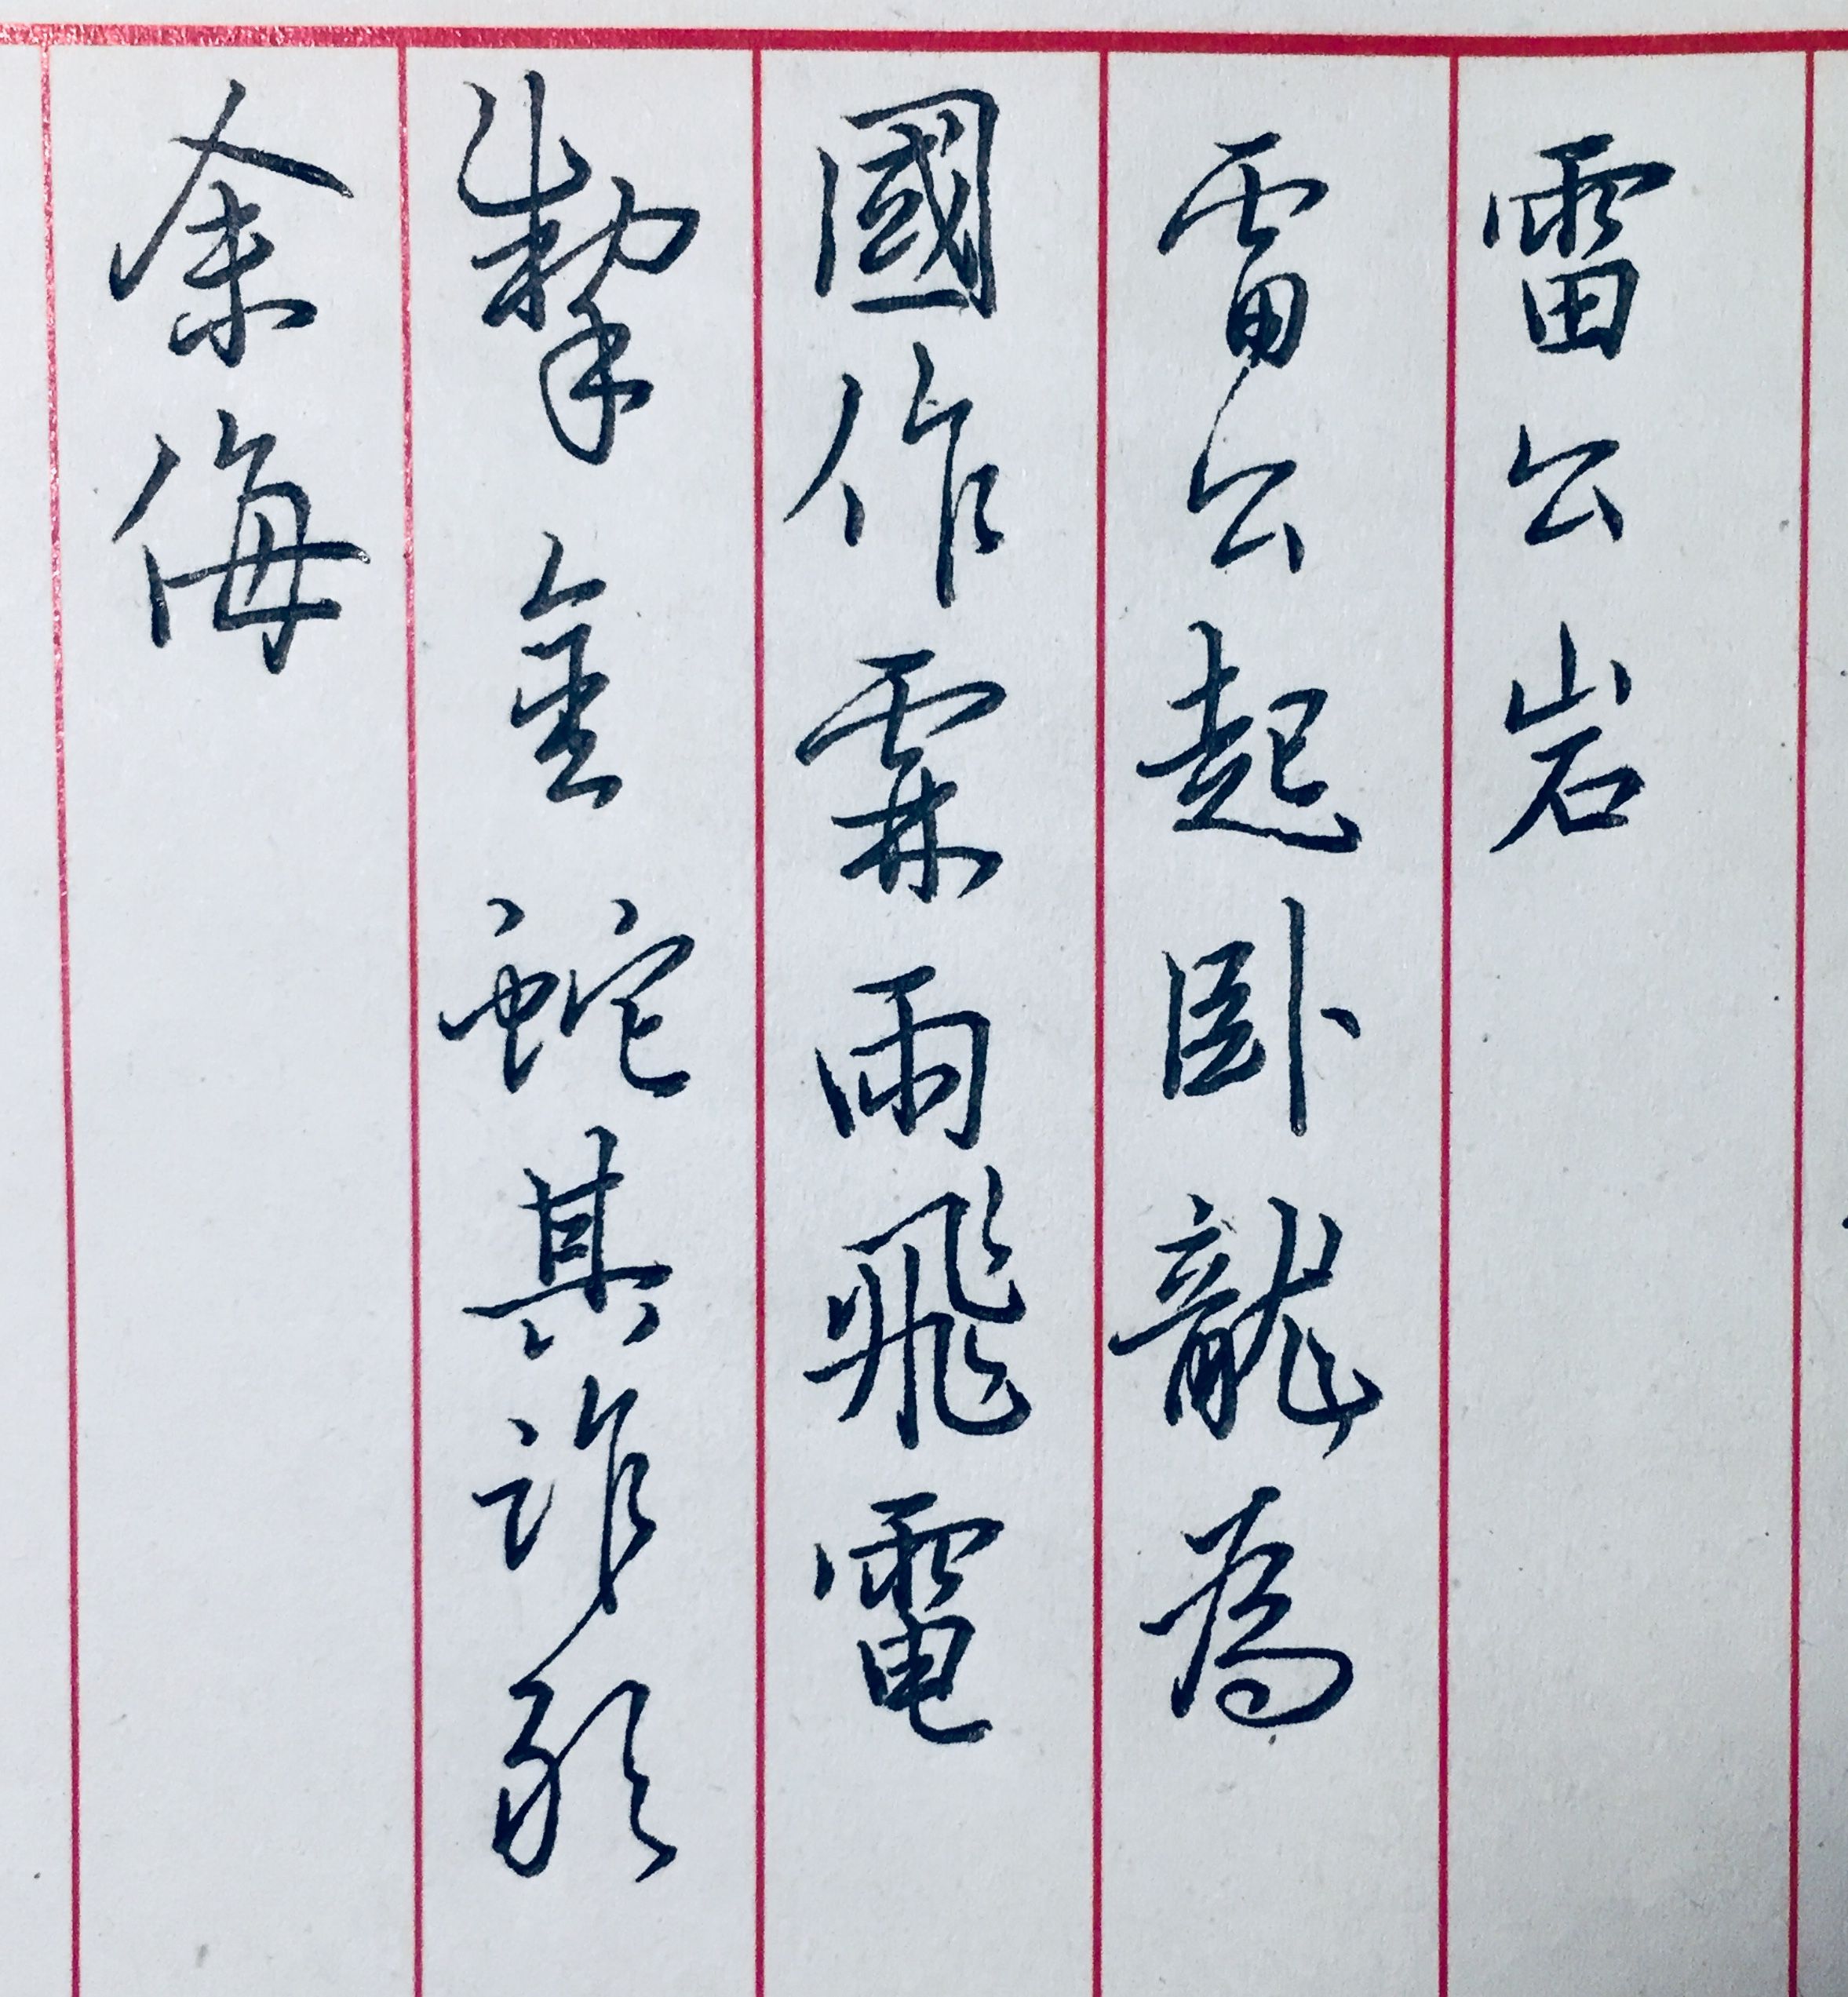 雷公岩
雷公起卧龍為
國作霖雨飛電
掣金蛇其誰敢
余侮